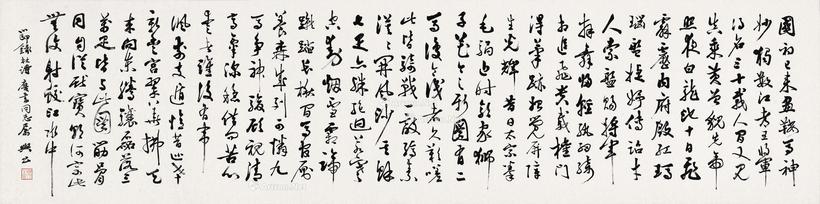 國初已來畫鞍馬神
妙獨數江都王將軍
得名三十載人間又見
真乘黃曾貌先帝
照夜白龍池十日飛
霹靂內府殷紅瑪
瑙盤婕妤傳詔才
人索盤賜將軍
拜舞歸輕紈細綺
相追飛貴戚權門
得筆跡始覺屏障
生光輝昔日太宗拳
毛騧近時郭家獅
子花今之新圖有二
馬復令識者久歎嗟
此皆騎戰一敵萬縞素
漠漠開風沙其餘
七匹亦殊絕迥若寒
空動煙雪霜蹄
蹴踏長楸間馬官廝
養森成列可憐九
馬爭神駿顧視清
高氣深穩借問苦心
愛者誰後有韋
諷前支遁憶昔巡幸
新豐宮翠華拂天
來向東騰驤磊落三
萬匹皆與此圖筋骨
同自從獻寶朝河宗
無復射蛟江水中
節錄杜詩 同志屬